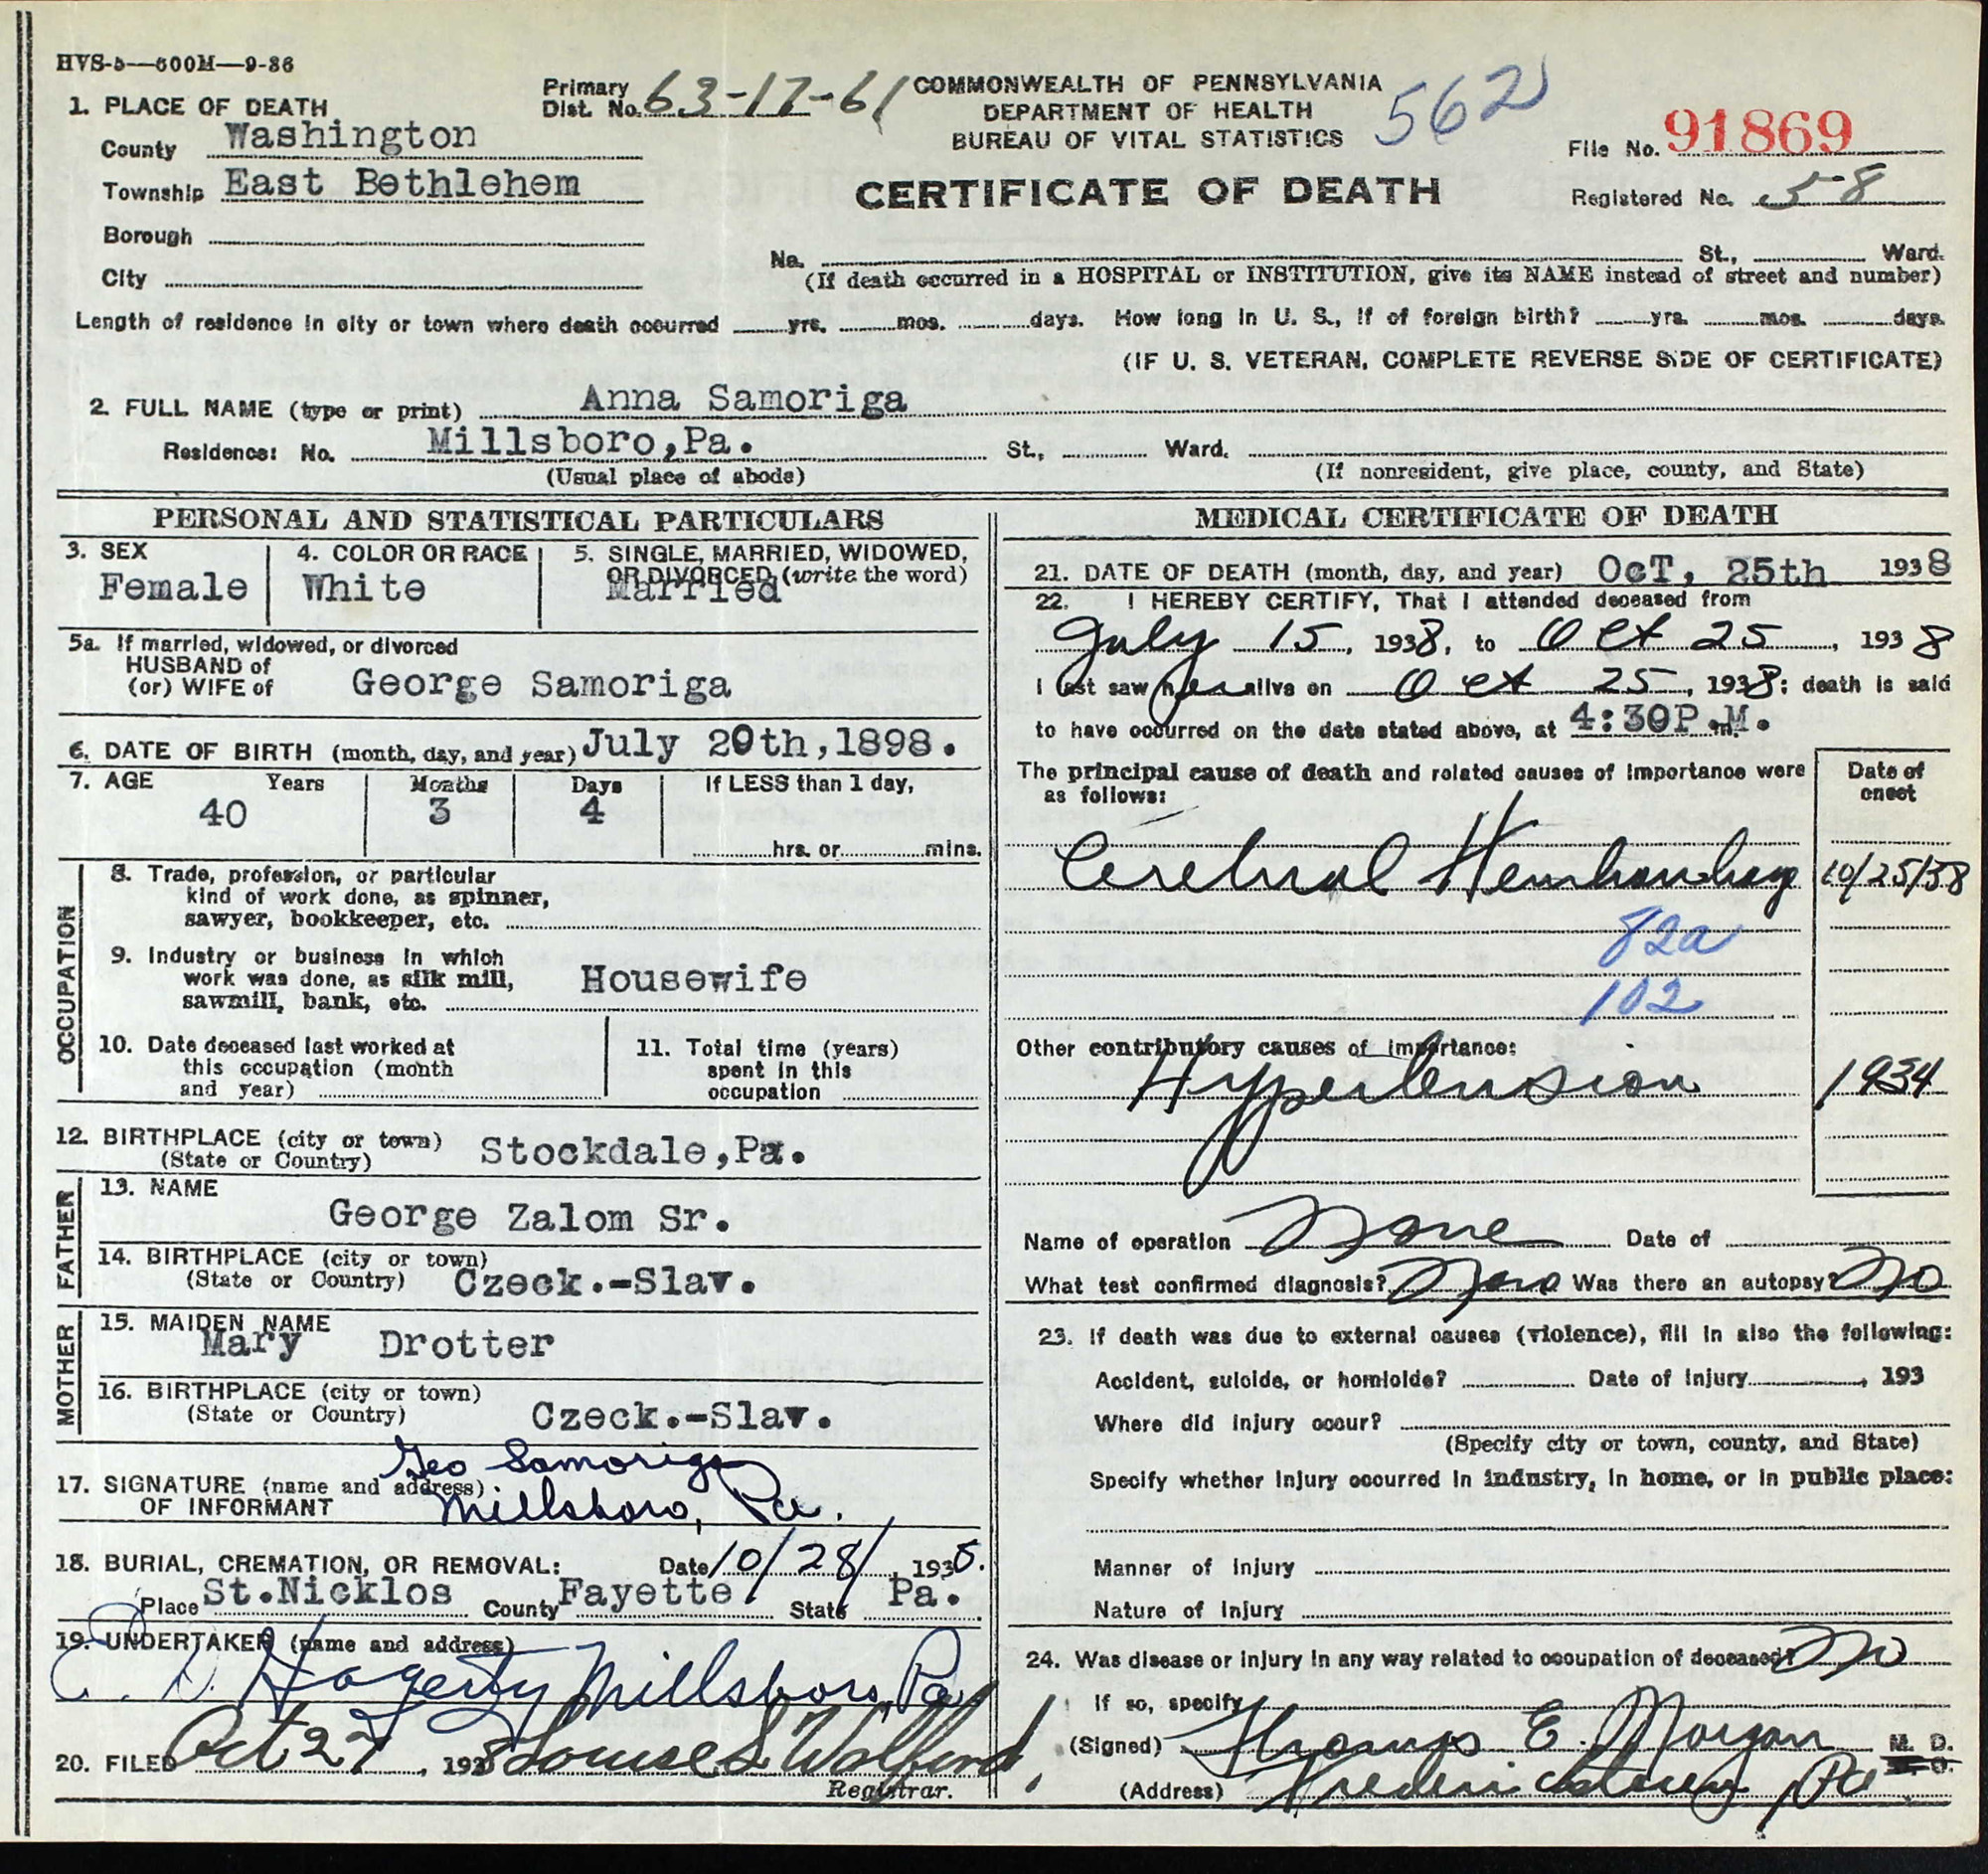 HVS-5—600M—9-36
Primary Dist. No. 63-17-61
COMMONWEALTH OF PENNSYLVANIA
DEPARTMENT OF HEALTH
BUREAU OF VITAL STATISTICS
562
CERTIFICATE OF DEATH
File No. 91869
Registered No. 58
1. PLACE OF DEATH
County Washington
Township East Bethlehem
Borough
City
No. St., Ward.
(If death occurred in a HOSPITAL or INSTITUTION, give its NAME instead of street and number)
Length of residence in city or town where death occurred yrs. mos. days. How long in U. S., if of foreign birth? yrs. mos. days.
(IF U. S. VETERAN, COMPLETE REVERSE SIDE OF CERTIFICATE)
2. FULL NAME (type or print) Anna Samoriga
Residence: No. Millsboro,Pa. St., Ward.
(Usual place of abode) (If nonresident, give place, county, and State)
PERSONAL AND STATISTICAL PARTICULARS
3. SEX Female
4. COLOR OR RACE White
5. SINGLE, MARRIED, WIDOWED, OR DIVORCED (write the word) Married
5a. If married, widowed, or divorced
HUSBAND of
(or) WIFE of George Samoriga
6. DATE OF BIRTH (month, day, and year) July 20th,1898.
7. AGE Years Months Days If LESS than 1 day,
40 3 4 hrs. or mins.
OCCUPATION
8. Trade, profession, or particular
kind of work done, as spinner,
sawyer, bookkeeper, etc.
9. Industry or business in which
work was done, as silk mill, Housewife
sawmill, bank, etc.
10. Date deceased last worked at
this occupation (month
and year)
11. Total time (years)
spent in this
occupation
12. BIRTHPLACE (city or town) Stockdale,Pa.
(State or Country)
FATHER
13. NAME
George Zalom Sr.
14. BIRTHPLACE (city or town)
(State or Country) Czeck.-Slav.
MOTHER
15. MAIDEN NAME
Mary Drotter
16. BIRTHPLACE (city or town)
(State or Country) Czeck.-Slav.
17. SIGNATURE (name and address) Geo Samoriga
OF INFORMANT Millsboro, Pa.
18. BURIAL, CREMATION, OR REMOVAL: Date 10/28/, 1938.
Place St.Nicklos County Fayette State Pa.
19. UNDERTAKER (name and address)
E. D. Hagerty Millsboro, Pa
20. FILED Oct 27, 1938 Louise L Wolford
Registrar.
MEDICAL CERTIFICATE OF DEATH
21. DATE OF DEATH (month, day, and year) OcT, 25th 1938
22. I HEREBY CERTIFY, That I attended deceased from
July 15, 1938, to Oct 25, 1938
I last saw her alive on Oct 25, 1938; death is said
to have occurred on the date stated above, at 4:30P.M. m.
The principal cause of death and related causes of importance were
as follows:
Date of
onset
Cerebral Hemhorrhage 10/25/38
82a
102
Other contributory causes of importance:
Hypertension 1934
Name of operation None Date of
What test confirmed diagnosis? None Was there an autopsy? No
23. If death was due to external causes (violence), fill in also the following:
Accident, suicide, or homicide? Date of injury , 193
Where did injury occur?
(Specify city or town, county, and State)
Specify whether injury occurred in industry, in home, or in public place:
Manner of injury
Nature of injury
24. Was disease or injury in any way related to occupation of deceased? No
If so, specify
(Signed) Thomas E. Morgan M. D.
(Address) Fredericktown, Pa